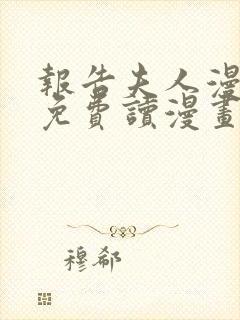 報告夫人漫
免費讀漫畫
穆郗